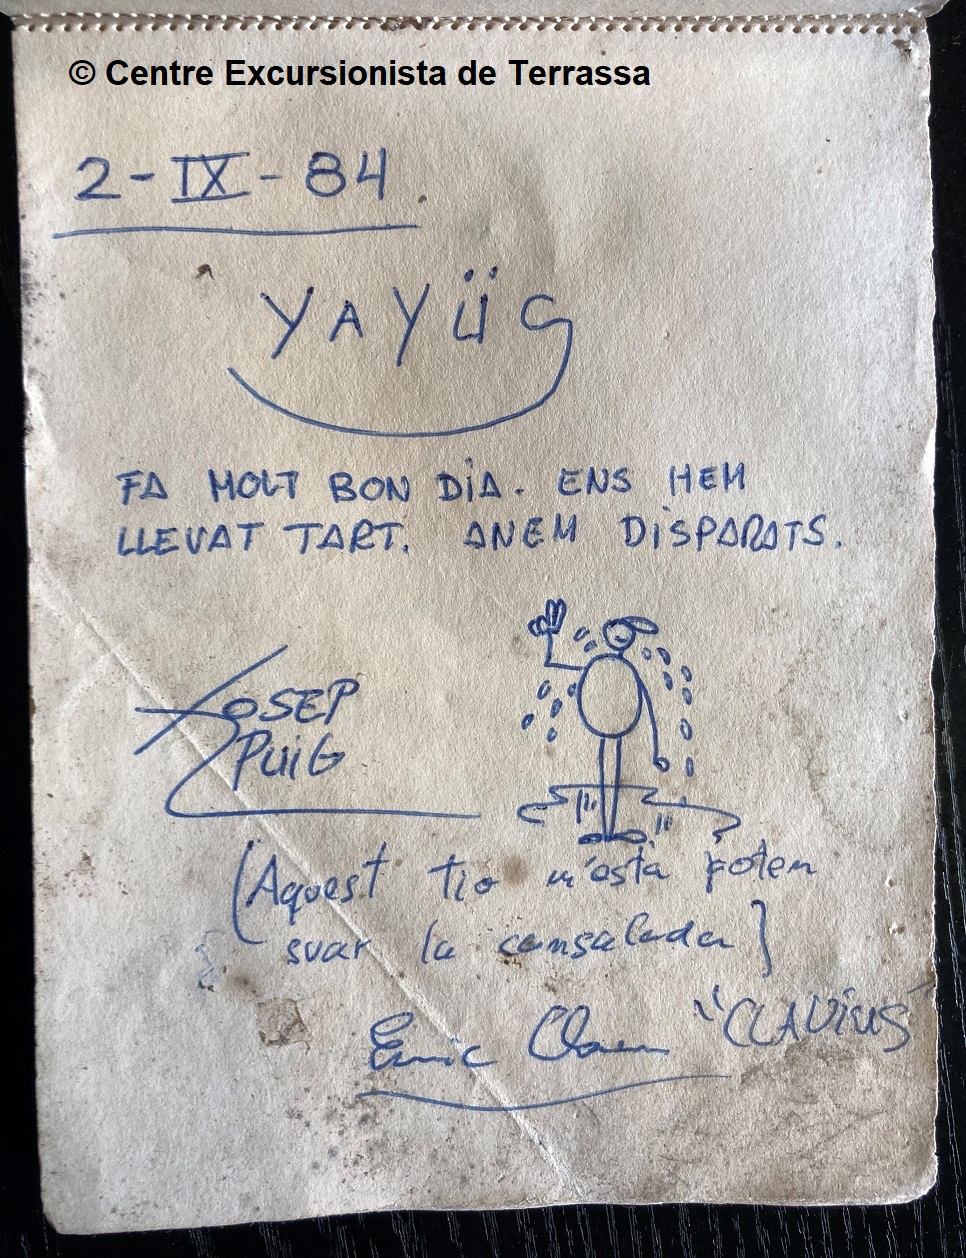 © Centre Excursionista de Terrassa
2-IX-84
YAYÜS
FA MOLT BON DiA. ENS HEM
LLEVAT TART. ANEM DiSPARATS.
JOSEP
PUiG
(Aquest tio m'està fotem
suar la cansalada)
Enric "CLAViUS"